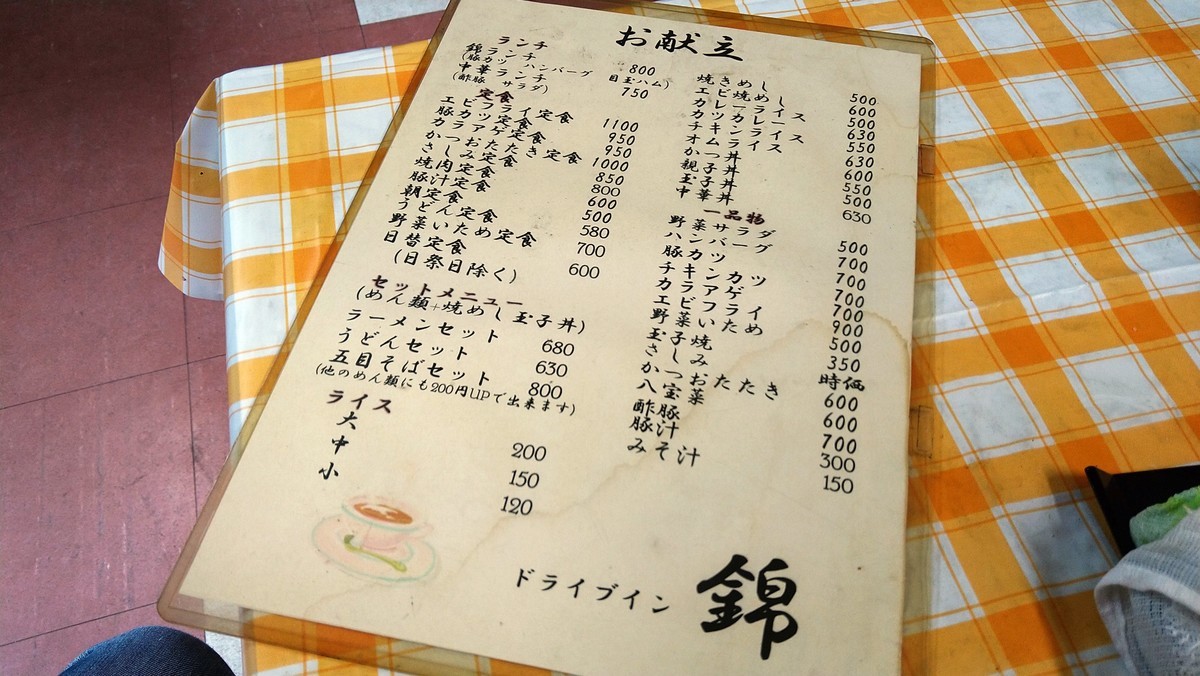 お献立
ランチ
錦ランチ 800
(豚カツ ハンバーグ 目玉ハム)
中華ランチ 750
(酢豚 サラダ)
定食
エビフライ定食 1100
豚カツ定食 950
カラアゲ定食 950
かつおたたき定食 1000
さしみ定食 850
焼肉定食 800
豚汁定食 600
朝定食 500
うどん定食 580
野菜いため定食 700
日替定食 600
(日祭日除く)
セットメニュー
(めん類+焼めし玉子丼)
ラーメンセット 680
うどんセット 630
五目そばセット 800
(他のめん類にも200円UPで出来ます)
ライス
大 200
中 150
小 120
焼きめし 500
エビ焼めし 600
カレーライス 500
カツカレー 630
チキンライス 550
オムライス 630
かつ丼 600
親子丼 550
玉子丼 500
中華丼 630
一品物
野菜サラダ 500
ハンバーグ 700
豚カツ 700
チキンカツ 700
カラアゲ 700
エビフライ 900
野菜いため 500
玉子焼 350
さしみ 時価
かつおたたき 600
八宝菜 600
酢豚 700
豚汁 300
みそ汁 150
ドライブイン 錦